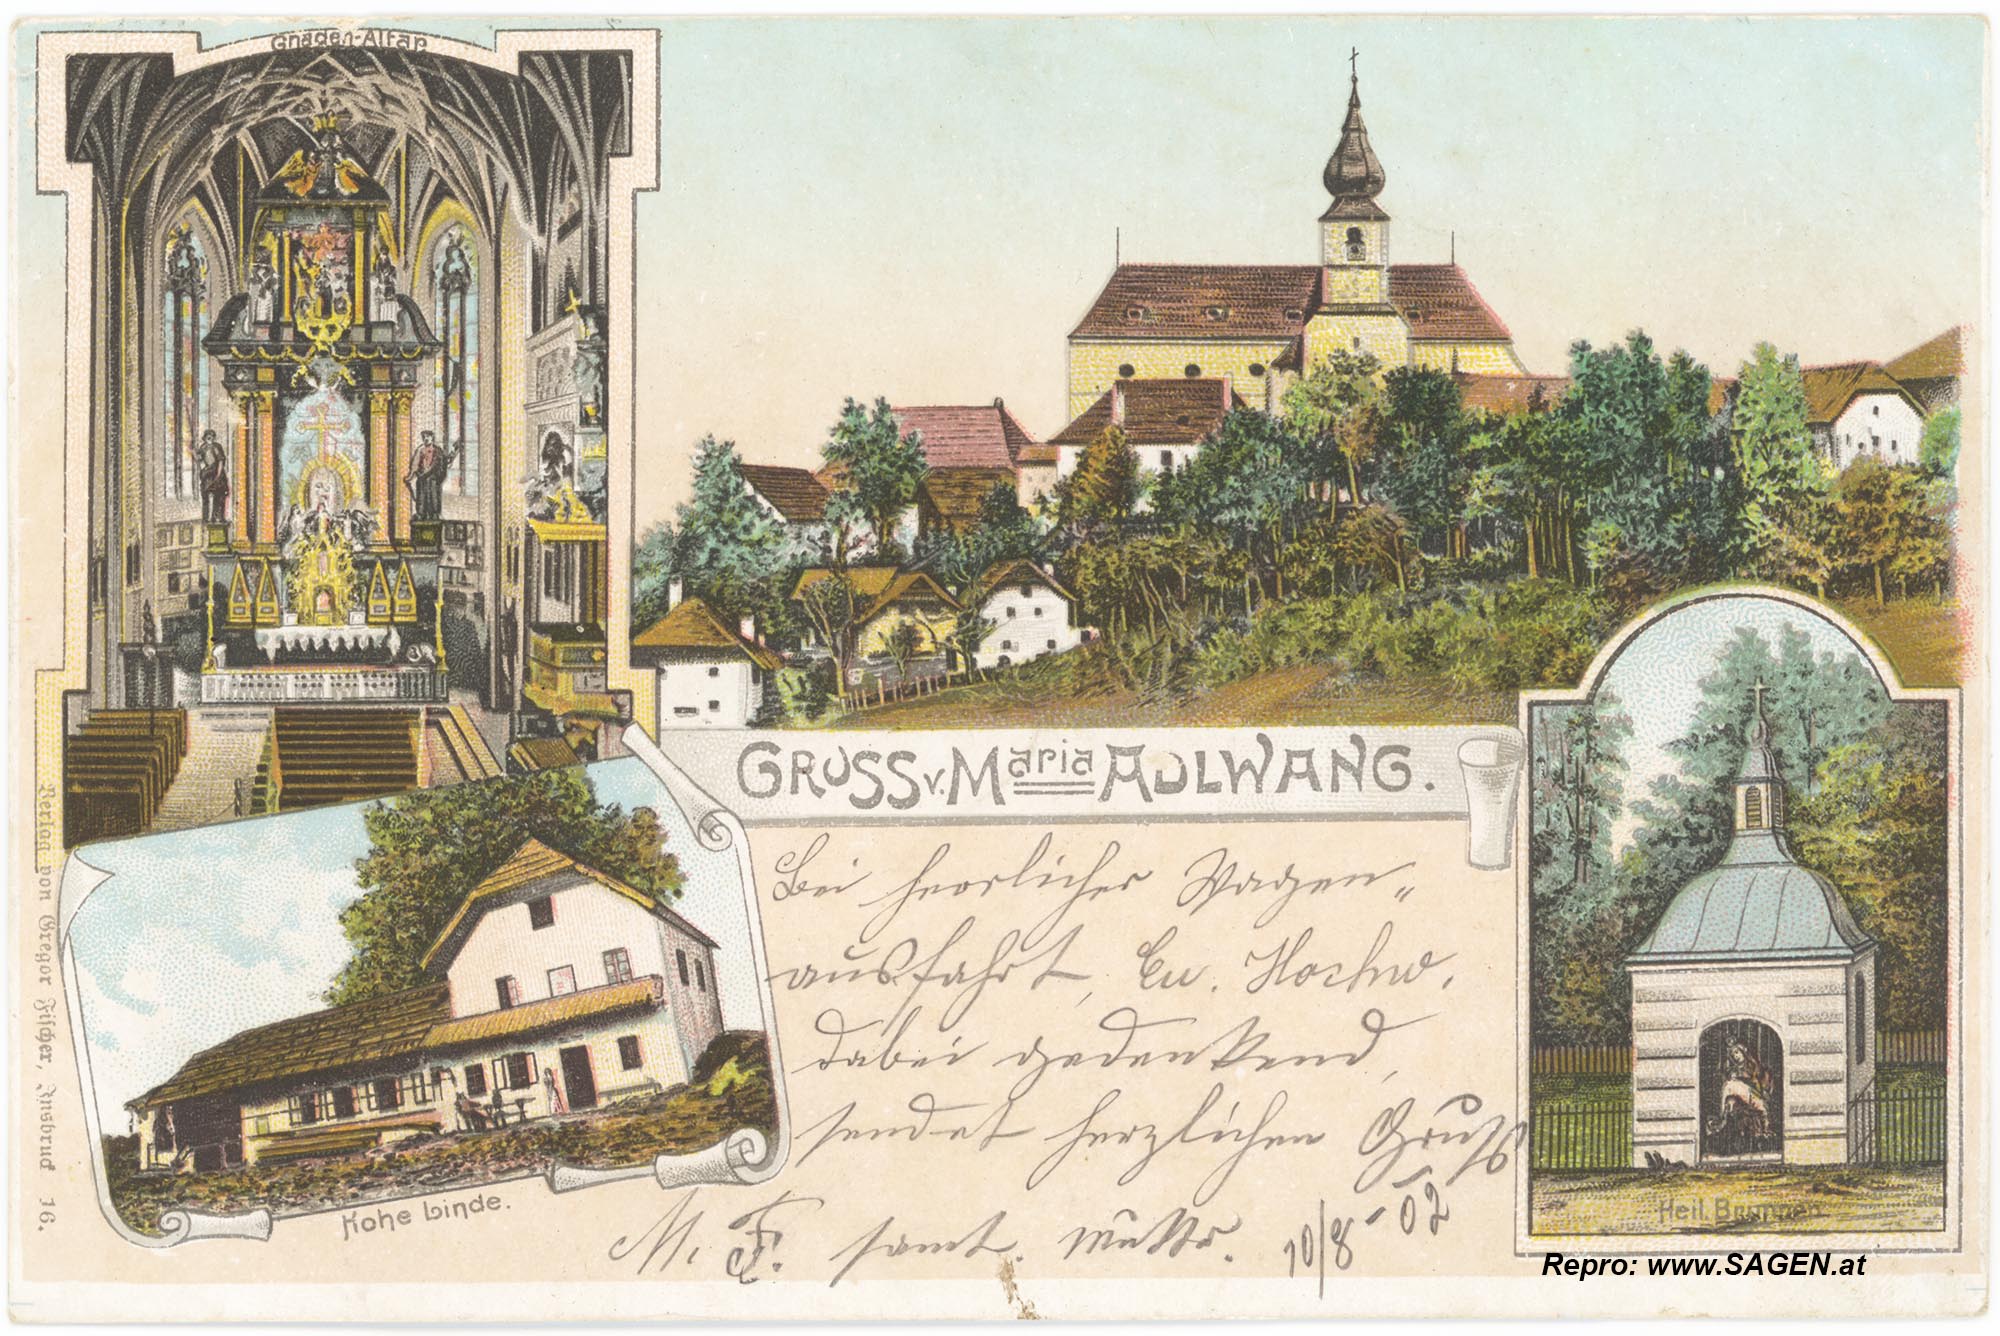 Gnaden-Altar
GRUSS v. Maria ADLWANG.
Bei herrlicher Wagen„
ausfahrt, Eu. Hochw.
dabei gedenkend,
sendet herzlichen Gruss
M. F. samt. Mutter. 10/8-02
Hohe Linde.
Heil. Brunnen.
Verlag von Gregor Fischer, Insbruck 16.
Repro: www.SAGEN.at